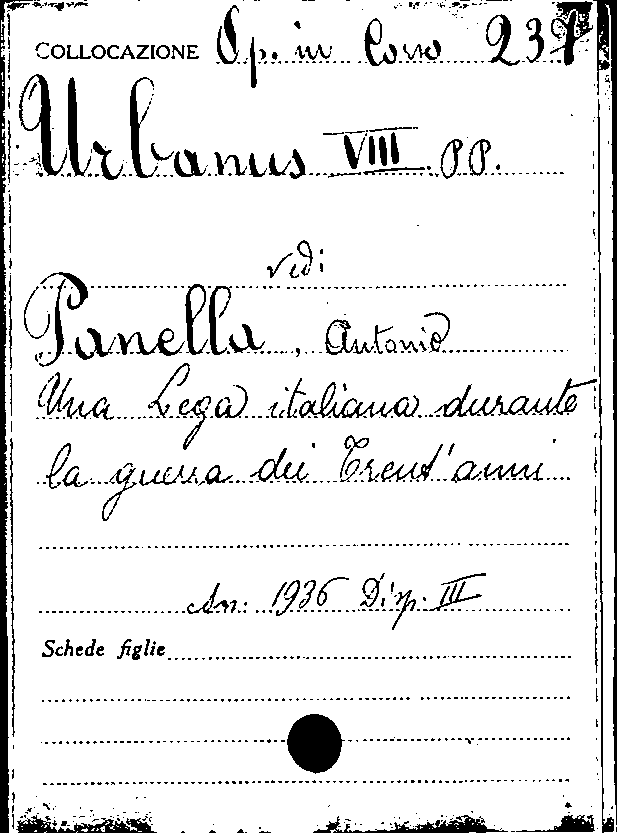 COLLOCAZIONE Op. in Corso 237
Urbanus VIII. PP.
vedi:
Panella, Antonio
Una Lega italiana durante
la guerra dei Trent'anni
An: 1936 Disp. III
Schede figlie